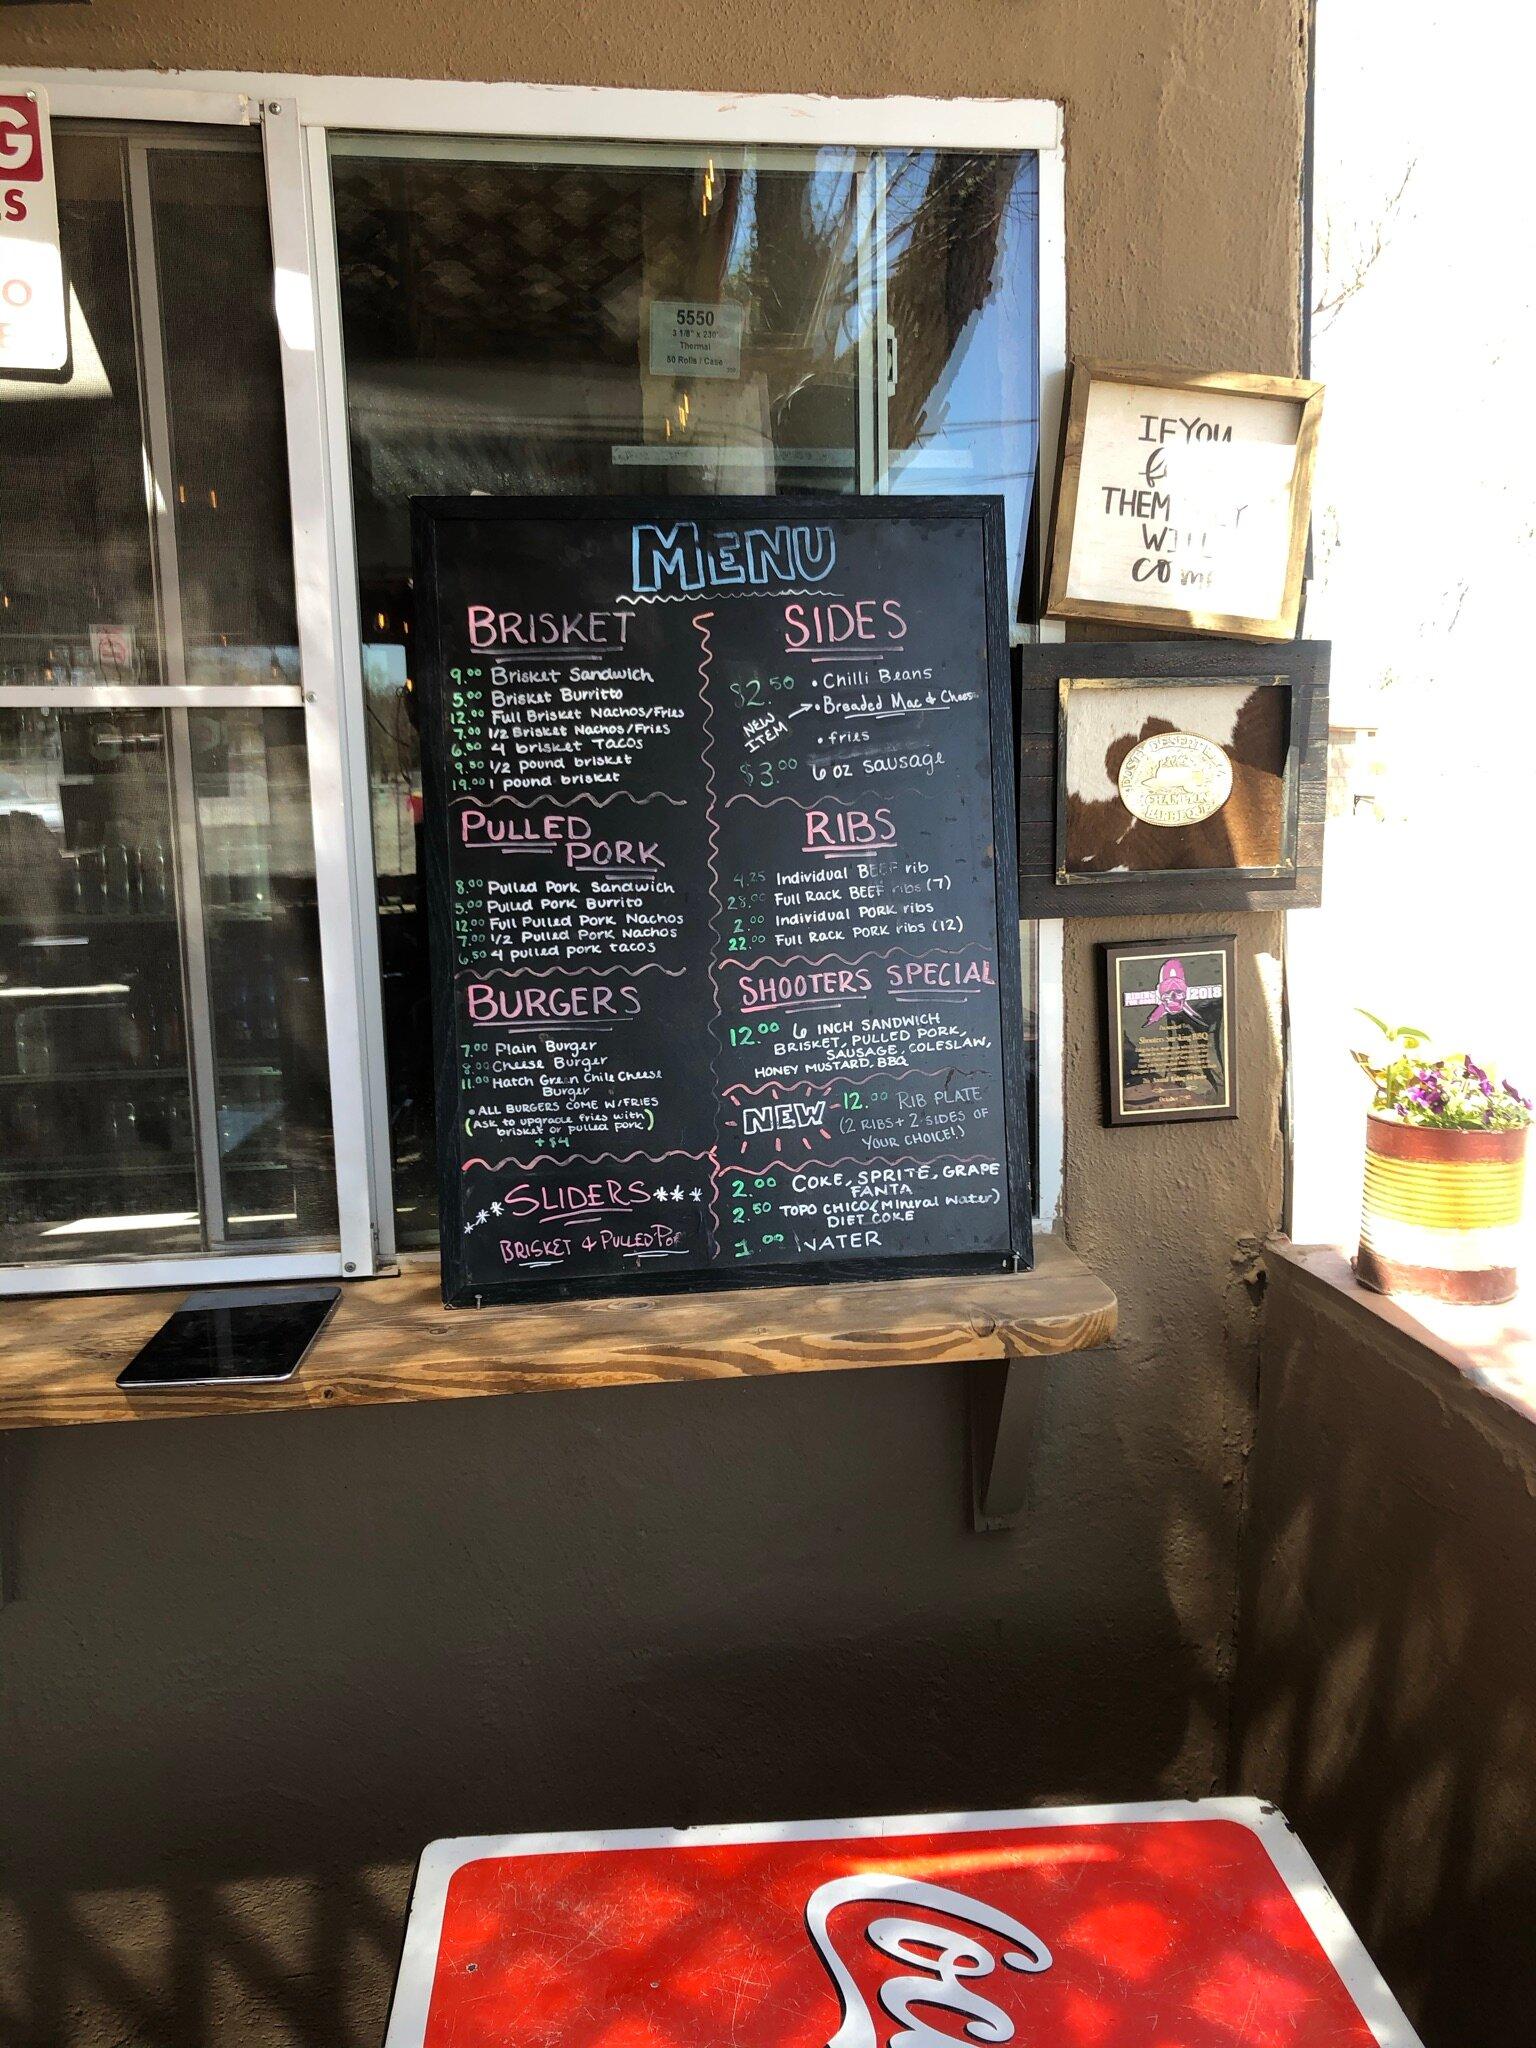 G
LS
O
5550
3 1/8" x 230'
Thermal
50 Rolls / Case
MENU
BRISKET
9.00 Brisket Sandwich
5.00 Brisket Burritto
12.00 Full Brisket Nachos/Fries
7.00 1/2 Brisket Nachos/Fries
6.50 4 brisket Tacos
9.50 1/2 pound brisket
19.00 1 pound brisket
PULLED
PORK
8.00 Pulled Pork Sandwich
5.00 Pulled Pork Burrito
12.00 Full Pulled Pork Nachos
7.00 1/2 Pulled Pork Nachos
6.50 4 pulled pork tacos
BURGERS
7.00 Plain Burger
8.00 Cheese Burger
11.00 Hatch Green Chile Cheese
Burger
• ALL BURGERS COME W/FRIES
(Ask to upgrade fries with
brisket or pulled pork)
+ $4
***SLIDERS***
BRISKET & PULLED
SIDES
$2.50 • Chilli Beans
NEW ITEM • Breaded Mac & Cheese
• fries
$3.00 6 oz sausage
RIBS
4.25 Individual BEEF rib
28.00 Full Rack BEEF ribs (7)
2.00 Individual PORK ribs
22.00 Full Rack PORK ribs (12)
SHOOTERS SPECIAL
12.00 6 INCH SANDWICH
BRISKET, PULLED PORK,
SAUSAGE, COLESLAW,
HONEY MUSTARD, BBQ
NEW 12.00 RIB PLATE
(2 RIBS + 2 SIDES OF
YOUR CHOICE!)
2.00 COKE, SPRITE, GRAPE
FANTA
2.50 TOPO CHICO (Mineral Water)
DIET COKE
1.00 WATER
IF YOU
THEM
WILL
COME
2018
Presented To
Shooters Smoking BBQ
October
Coca